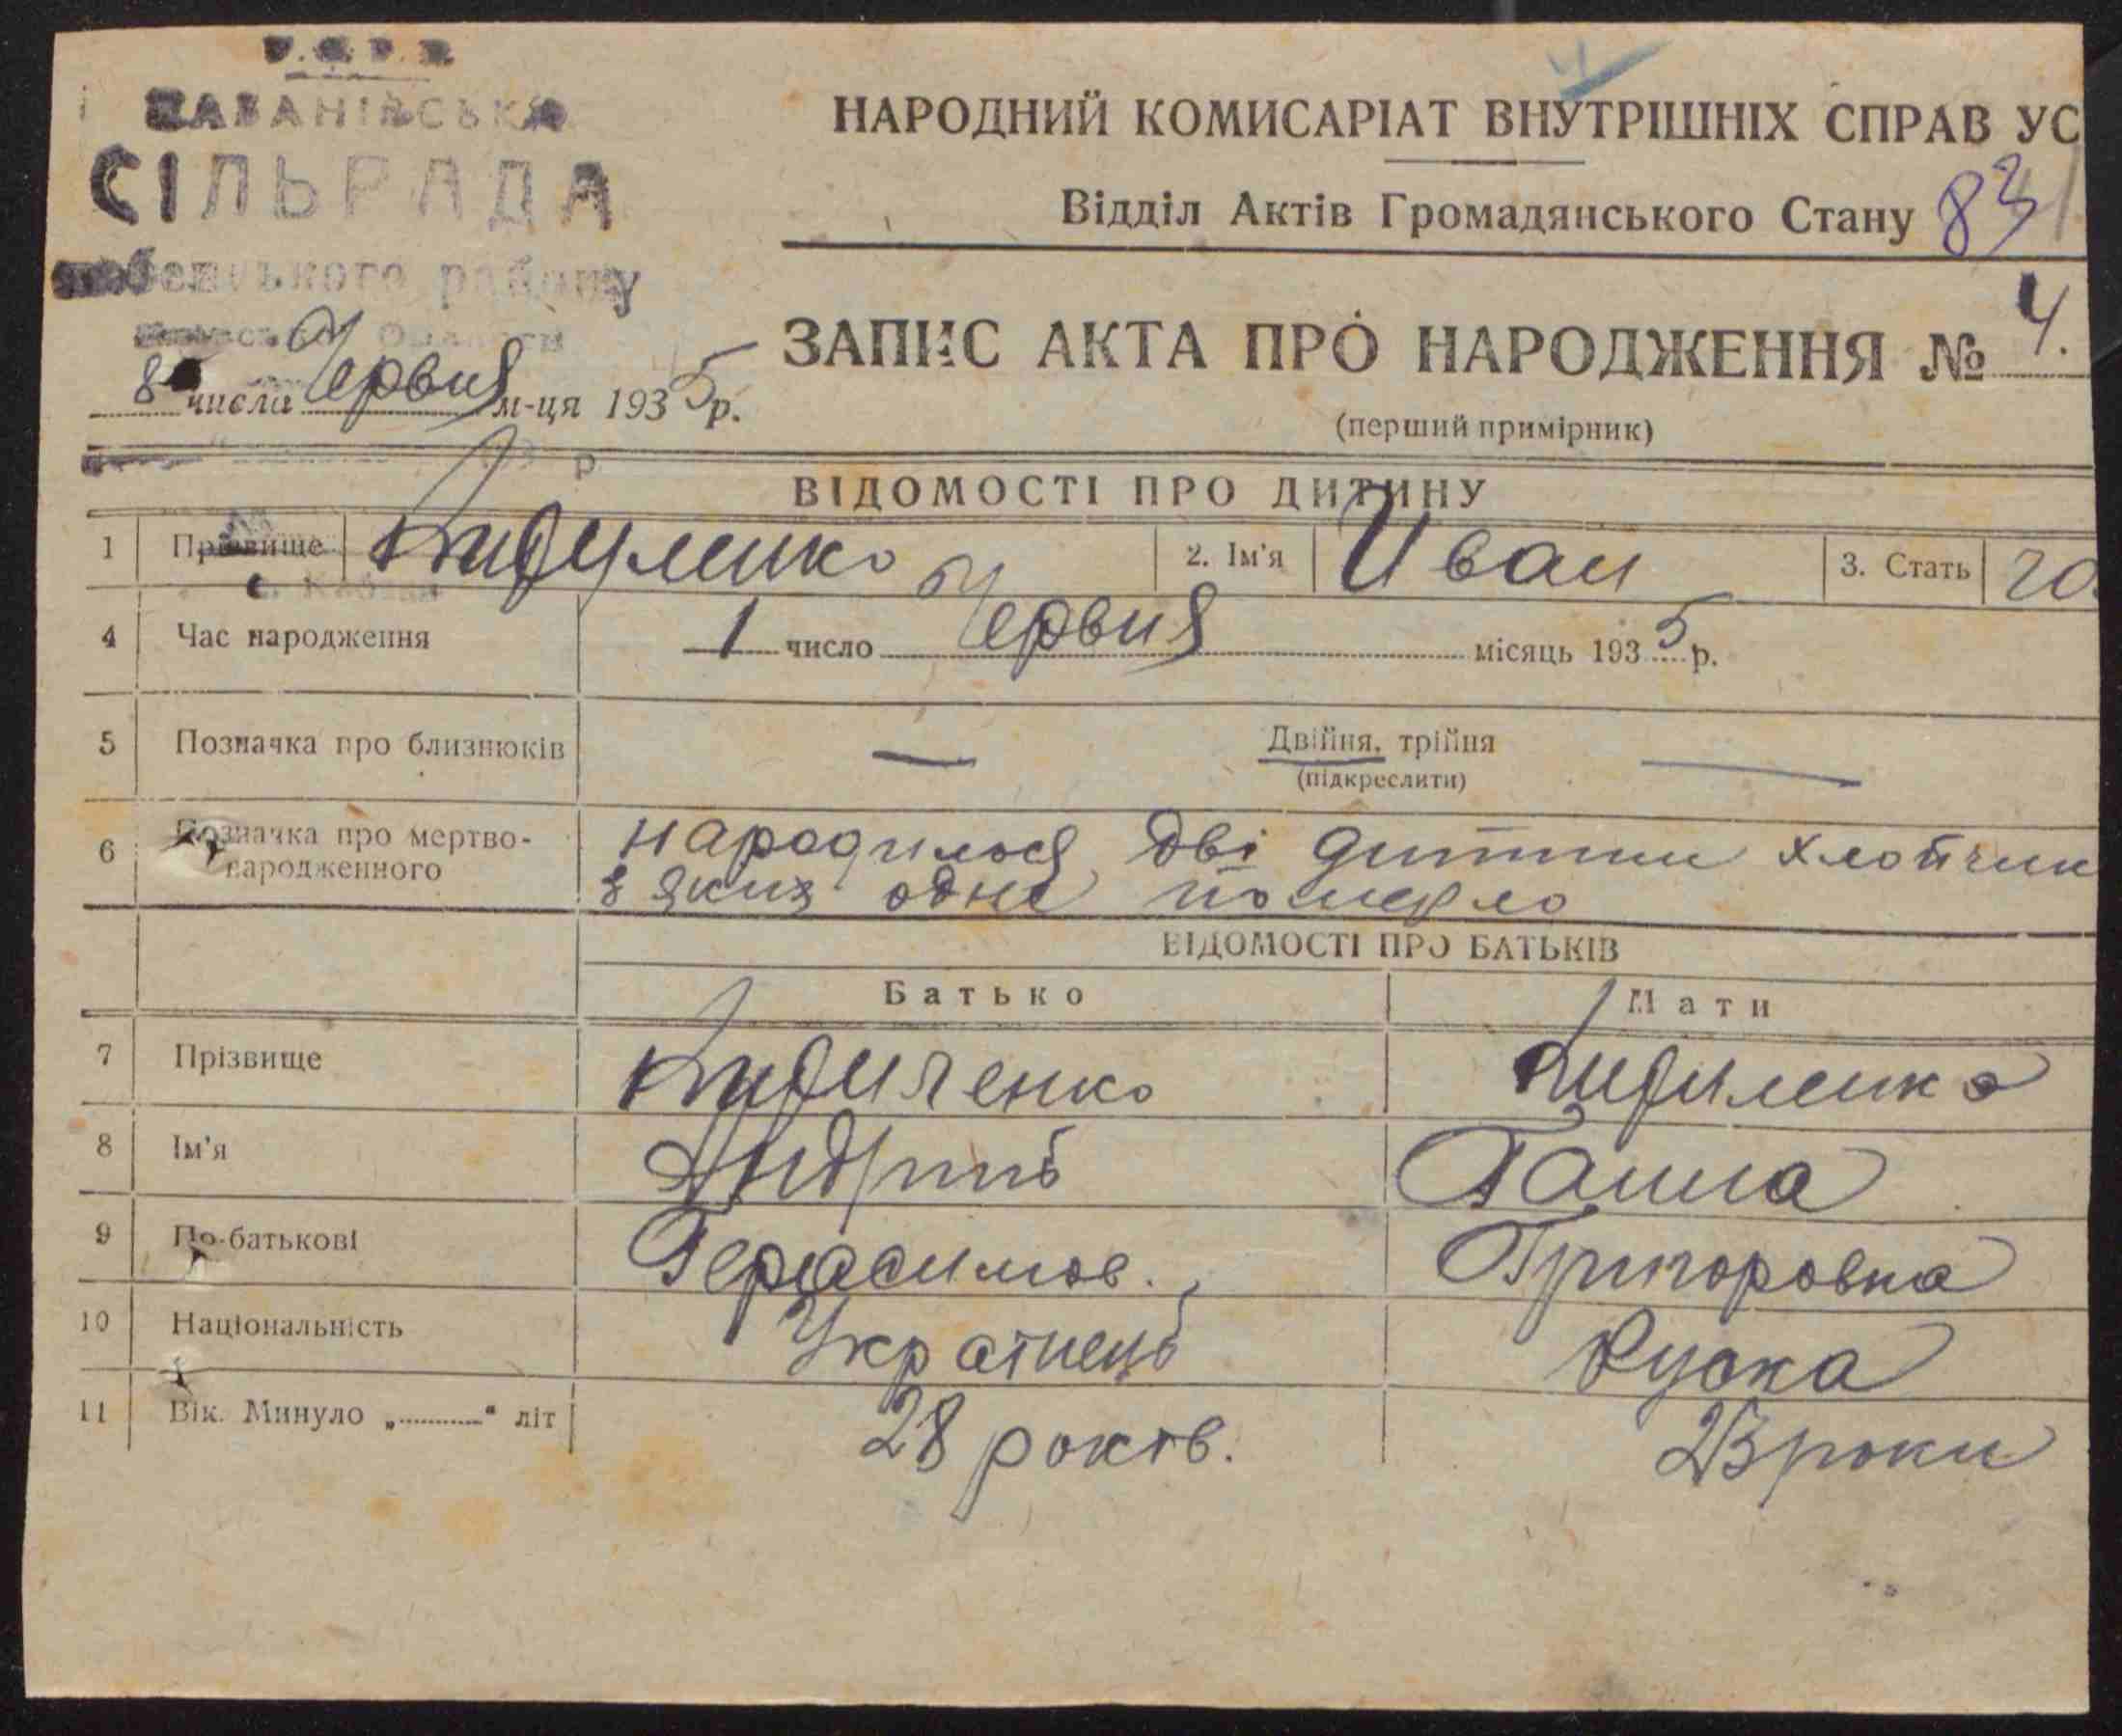 У.С.Р.Р.
СІЛЬРАДА
району
НАРОДНИЙ КОМИСАРІАТ ВНУТРІШНІХ СПРАВ УС
Відділ Актів Громадянського Стану 83
ЗАПИС АКТА ПРО НАРОДЖЕННЯ № 4.
8 числа Червня м-ця 1935 р.
(перший примірник)
ВІДОМОСТІ ПРО ДИТИНУ
1 Прізвище 2. Ім'я Иван 3. Стать
4 Час народження 1 число Червня місяць 1935 р.
5 Позначка про близнюків — Двійня, трійня —
(підкреслити)
6 Позначка про мертво-
народженного
народилося дві дитини хлопчик
з яких одне померло
ВІДОМОСТІ ПРО БАТЬКІВ
Батько Мати
7 Прізвище
8 Ім'я Андрий Ганна
9 По-батькові Герасимов. Григоровна
10 Національність Украінець Руска
11 Вік. Минуло „..........“ літ 28 років. 23 роки